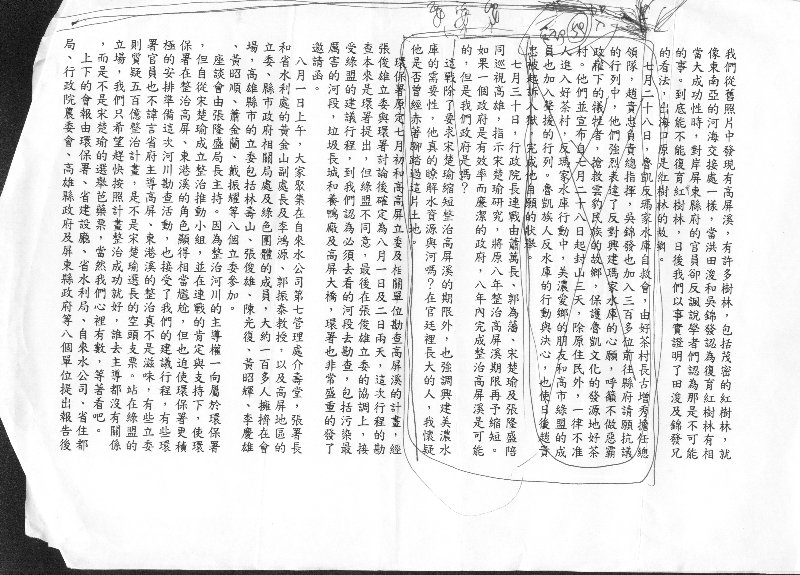 我們從舊照片中發現有高屏溪，有許多樹林，包括茂密的紅樹林，就
像東南亞的河海交接處一樣，當洪田浚和吳錦發認為復育紅樹林有相
當大成功性時，對岸屏東縣府的官員卻反諷說學者們認為那是不可能
的事。到底能不能復育紅樹林，日後我們以事實證明了田浚及錦發兄
的看法，出海口原是紅樹林的故鄉。
七月二十八日，魯凱反瑪家水庫自救會，由好茶村長古增秀擔任總
領隊，趙貴忠負責總指揮，吳錦發也加入三百多位前往縣府請願抗議
的行列中，他們強烈表達了反對興建瑪家水庫的心願，呼籲不做惡霸
政權下的犧牲者，搶救雲豹民族的故鄉，保護魯凱文化的發源地好茶
村。他們並宣布自七月二十八日起封山三天，除原住民外，一律不准
人進入好茶村，反瑪家水庫行動中，美濃愛鄉的朋友和高市綠盟的成
員也加入聲援的行列。魯凱族人反水庫的行動與決心，也使日後趙貴
忠被起訴入獄，完成他自願的壯舉。
七月三十日，行政院長連戰由蕭萬長、郭為藩、宋楚瑜及張隆盛陪
同巡視高雄，指示宋楚瑜研究，將原八年整治高屏溪期限再予縮短。
如果一個政府是有效率而廉潔的政府，八年內完成整治高屏溪是可能
的，但是我們政府是嗎？
這戰除了要求宋楚瑜縮短整治高屏溪的期限外，也強調興建美濃水
庫的需要性，他真的瞭解水資源與河嗎？在官廷裡長大的人，我懷疑
他是否曾經赤著腳踏過這片土地。
環保署原定七月初和高高屏立委及相關單位勘查高屏溪的計畫，經
張俊雄立委與環署討論後確定為八月一日及二日兩天，這次行程的勘
查本來是環署提出，但綠盟不同意，最後在張俊雄立委的協調上，接
受綠盟的建議行程，到我們認為必須去看的河段去勘查，包括污染最
厲害的河段，垃圾長城和養鴨廠及高屏大橋，環署也非常盛重的發了
邀請函。
八月一日上午，大家聚集在自來水公司第七管理處介壽堂，張署長
和省水利處的黃金山副處長及李鴻源、郭振泰教授，以及高屏地區的
立委、縣市政府相關局處及綠色團體的成員，大約一百多人擁擠在會
場，高雄縣市的立委包括林壽山、張俊雄、陳光復、黃昭輝、李慶雄
、黃昭順、蕭金蘭、戴振耀等八個立委參加。
座談會由張隆盛局長主持。因為整治河川的主導權一向屬於環保署
，但自從宋楚瑜成立整治推動小組，並在連戰的肯定與支持下，使環
保署在整治高屏、東港溪的角色顯得相當尷尬，但也迫使環保署更積
極的安排準備這次河川勘查活動，也接受了我們的建議行程，有些環
署官員也不諱言省府主導高屏、東港溪的整治真不是滋味，有些立委
則質疑五百億整治計畫，是不是宋楚瑜選長的空頭支票。站在綠盟的
立場，我們只希望趕快按照計畫整治成功就好，誰去主導都沒有關係
，而是不是宋楚瑜的選舉芭藥票，當然我們心裡有數，等著看吧。
上下的會報由環保署、省建設廳、省水利局、自來水公司、省住都
局、行政院農委會、高雄縣政府及屏東縣政府等八個單位提出報告後